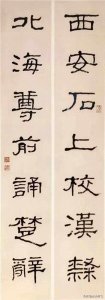 西安石上校漢隸
北海尊前誦楚辭